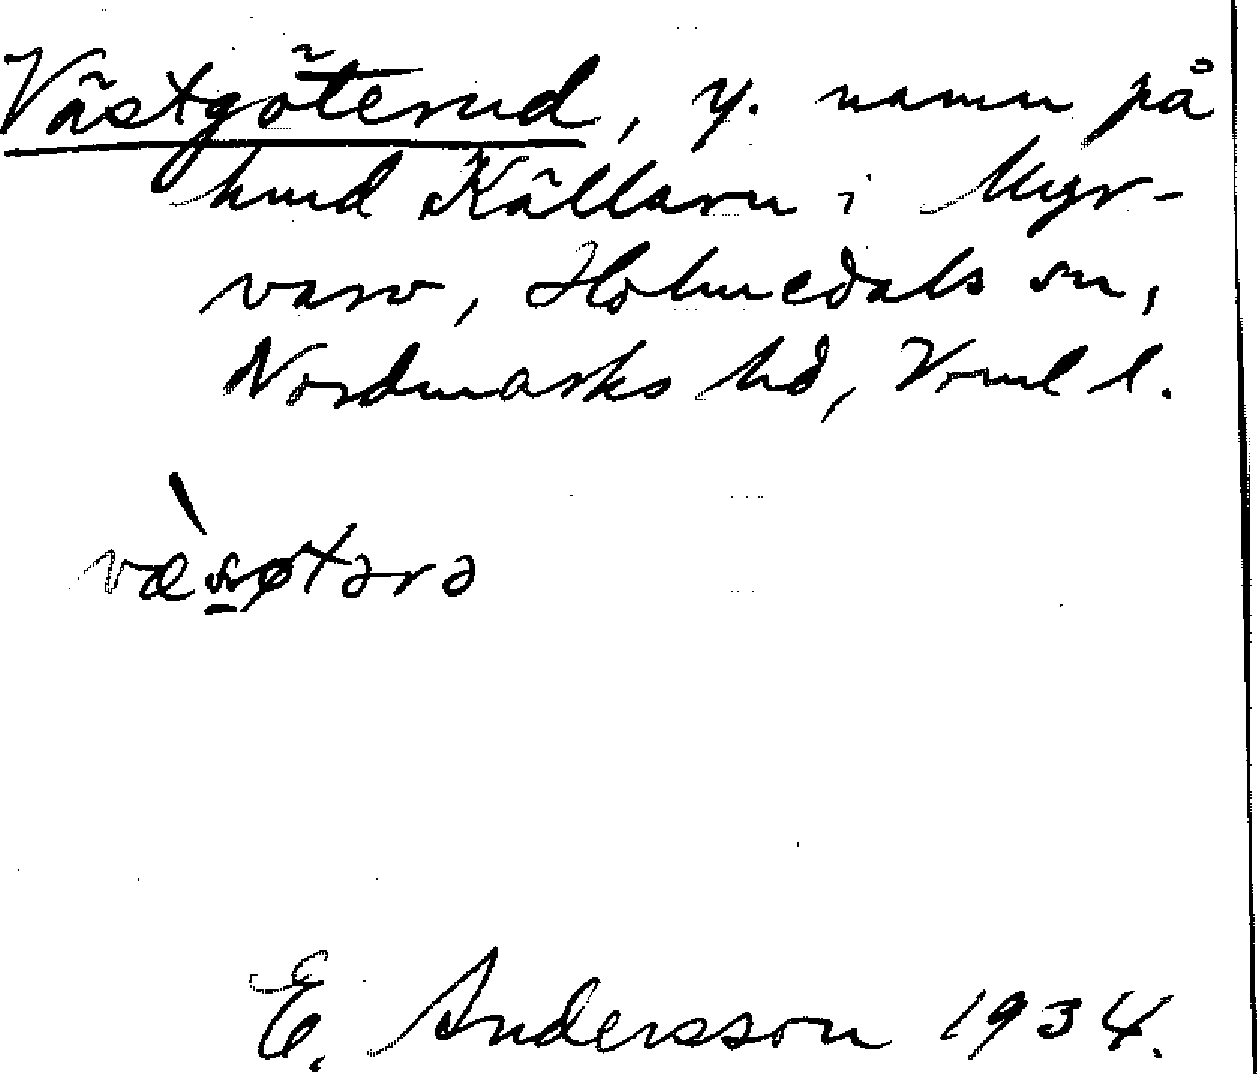 Västgöterud, y. namn på
hmd Källarn i Myr-
varv, Holmedals sn,
Nordmarks hd, Vrml l.
væsøtərə
E. Andersson 1934.